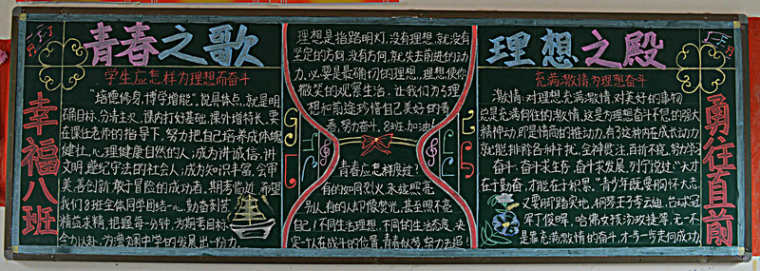 青春之歌
学生应怎样为理想而奋斗
幸福八班
"培德修身，博学增能"，说具体点，就是明
确目标，分清主次，课内打好基础，课外增特长，要
在课任老师的指导下，努力把自己培养成体魄
健壮，心理健康自然的人；成为讲诚信，讲
文明，遵纪守法的社会人；成为知识丰富，会审
美，善创新，敢于冒险的成功者。期考临近，希望
我们8班全体同学团结一心，勤奋刻苦
精益求精，把握每一分钟，为期考目标
理想是指路明灯，没有理想，就没有
坚定的方向，没有方向，就失去前进的动
力，必要是最确切的理想，理想使你
微笑的观察生活，让我们为了理
想和前途珍惜自己美好的青
春，努力奋斗，8班加油
青春应怎样度过？
有的如同烈火永远照亮
别人，有的人却像荧光，甚至照不亮
自己！不同生活理想，不同的生活态度，决
定一个人在战斗的位置，青春似梦，努力去追
理想之殿
充满激情为理想奋斗
激情，对理想充满激情，对美好的事物
总是充满向往的激情，这是为理想奋斗不息的强大
精神动力，即是情商的推动力，有了这种内在成长动力
就能排除各种干扰，全神贯注，百折不挠，努力学习
奋斗，奋斗求生存，奋斗求发展，列宁说过："天才
在于勤奋，才能在于积累。"青少年既要胸怀大志
又要脚踏实地，钢琴王子李云迪，台球冠
军丁俊晖，哈佛女孩刘亦婷等，无一不
是靠充满激情的奋斗，才一步步走向成功
勇往直前